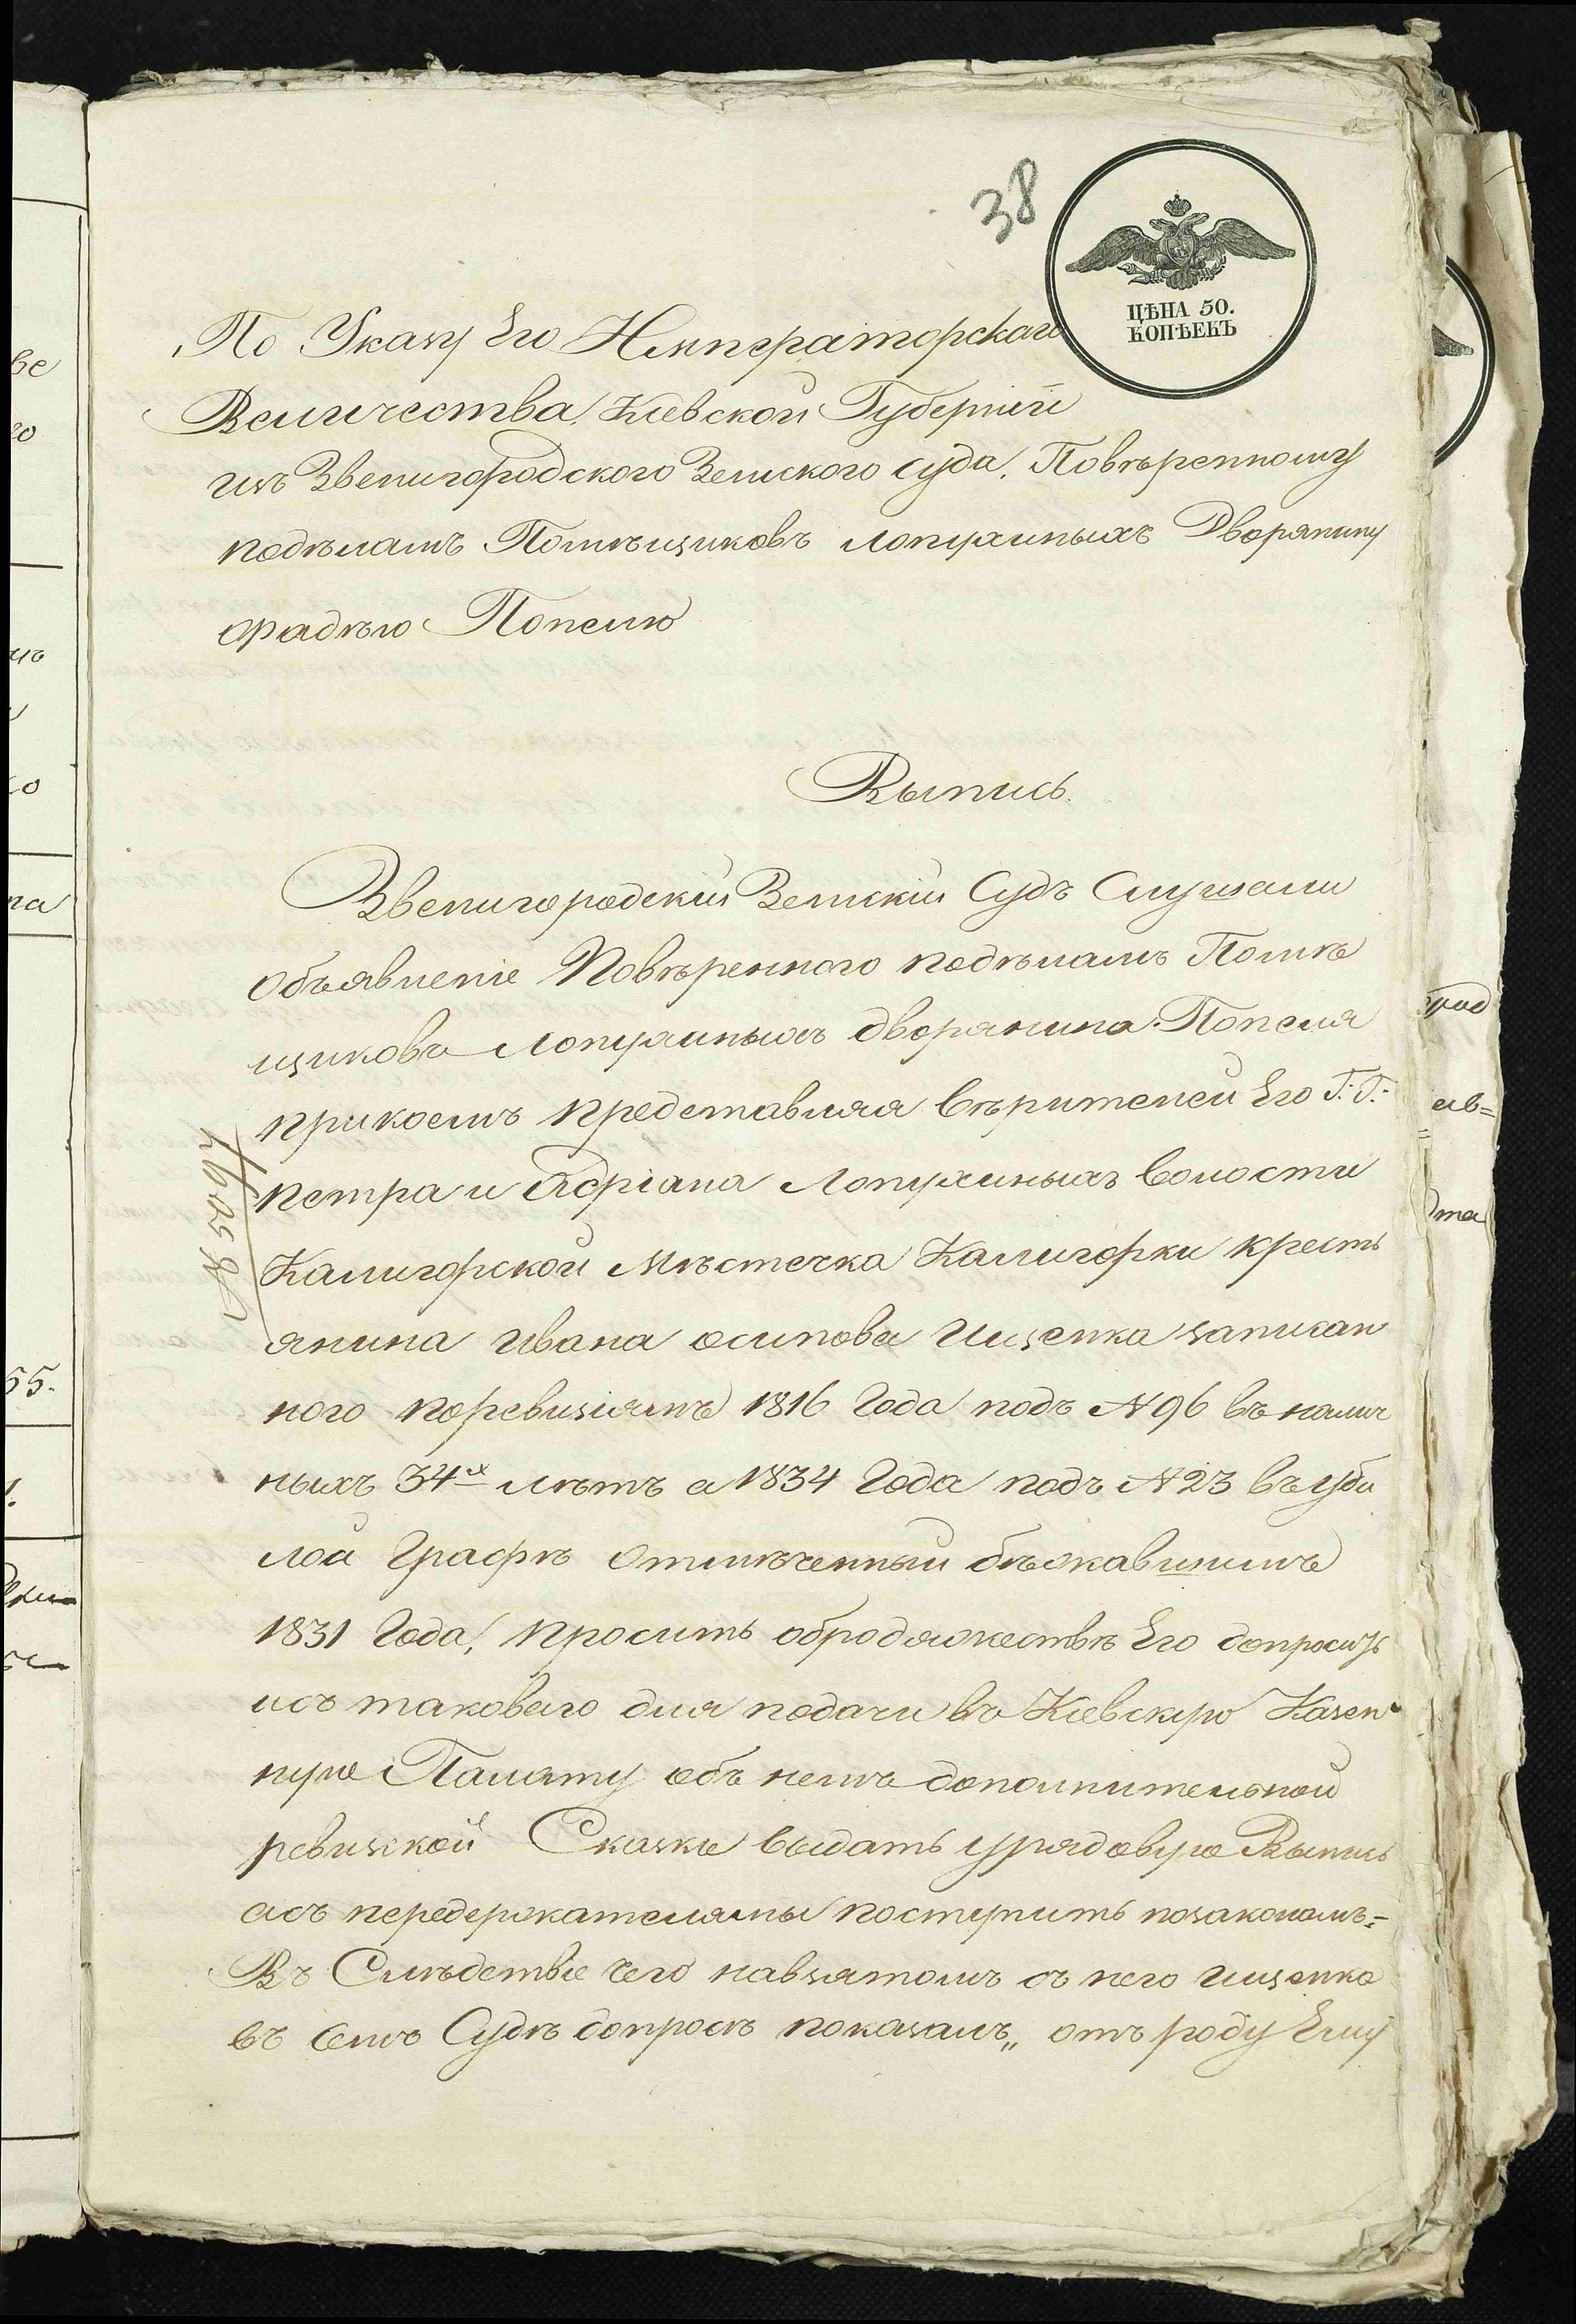 38
ЦѢНА 50.
КОПѢЕКЪ
По Указу Его Императорскаго
Величества, Кіевской Губерніи
изъ Звенигородского Земского суда, Повѣренному
подѣламъ Помѣщиковъ Лопухиныхъ Дворянину
Попелю
Выпись.
Звенигородскій Земскій Судъ Слушали
объявленіе Повѣренного подѣламъ Помѣ
щиковъ Лопухиныхъ дворянина Попеля
прикоемъ представляя вѣрителей Его Г: Г:
Петра и Адріана Лопухиныхъ волости
Калигорской мѣстечка Калигорки кресть
янина Ивана осипова Ищенка записан
ного поревизіямъ 1816 Года подъ №96 въ налич
ныхъ 34х лѣтъ а 1834 Года подъ №23 въ убы
лой Графѣ отмѣченный бѣжавшимъ
1831 Года, просить обродяжествѣ Его допросить
исъ таковаго для подачи въ Кіевскую Казен
ную Палату объ немъ дополнительной
ревизской Сказки выдать урядовую Выпись
асъ передержателямы поступить позакономъ=
Въ Слѣдствіе чего навзятомъ съ него Ищенка
въ семъ Судѣ допросѣ показалъ„ отъ роду Ему